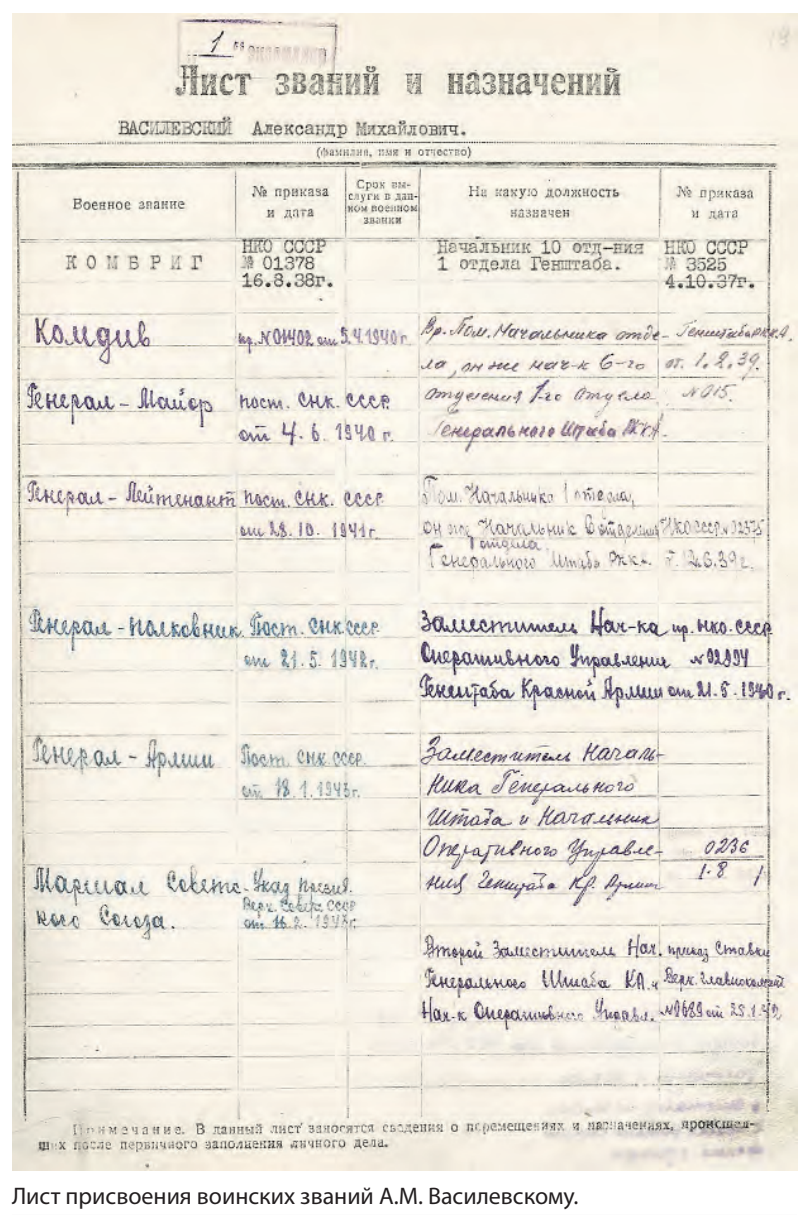 19
1 ый ЭКЗЕМПЛЯР
Лист званий и назначений
ВАСИЛЕВСКИЙ Александр Михайлович.
(фамилия, имя и отчество)
Военное звание
№ приказа
и дата
Срок вы-
слуги в дан-
ном военном
звании
На какую должность
назначен
№ приказа
и дата
КОМБРИГ
НКО СССР
№ 01378
16.8.38г.
Начальник 10 отд-ния
1 отдела Генштаба.
НКО СССР
№ 3525
4.10.37г.
Комдив
пр. №01402 от 5.4.1940г.
Вр. Пом. Начальника отде-
ла, он же нач-к 6-го
отделения 1го отдела
Генерального Штаба РККА.
Генштаба РККА.
от. 1.2.39.
№ 015.
Генерал-Майор
пост. СНК. СССР
от 4.6.1940г.
Генерал-Лейтенант
пост. СНК. СССР
от 28.10.1941г.
Пом. Начальника 1 отдела,
он же Начальник 6 отделения
1 отдела
Генерального Штаба РККА.
НКО СССР №02375
Генерал-полковник
Пост. СНК СССР
от 21.5.1942г.
Заместитель Нач-ка
Оперативного Управления
Генштаба Красной Армии
пр. НКО. СССР
от 21.5.1940г.
Генерал-Армии
Пост. СНК СССР.
от 18.1.1943г.
Заместитель Началь-
ника Генерального
Штаба и Начальник
Оперативного Управле-
ния Генштаба Кр. Армии
0236
1.8
Маршал Советс-
кого Союза.
Указ презид.
Верх. Совет. СССР
от 16.2.1943г.
Второй Заместитель Нач.
Генерального Штаба КА. и
Нач-к Оперативного Управл.
приказ Ставки
Верх. Главноком.
Примечание. В данный лист заносятся сведения о перемещениях и назначениях, происшед-
ших после первичного заполнения личного дела.
Лист присвоения воинских званий А.М. Василевскому.